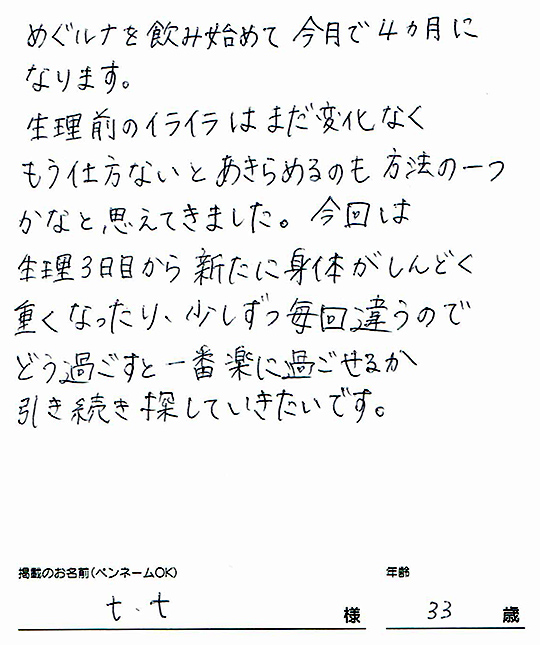 めぐルナを飲み始めて 今月で4ヵ月に
なります。
生理前のイライラはまだ変化なく
もう仕方ないとあきらめるのも方法の一つ
かなと思えてきました。今回は
生理3日目から新たに身体がしんどく
重くなったり、少しずつ毎回違うので
どう過ごすと一番楽に過ごせるか
引き続き探していきたいです。
掲載のお名前(ペンネームOK) 年齢
t.t 様 33 歳